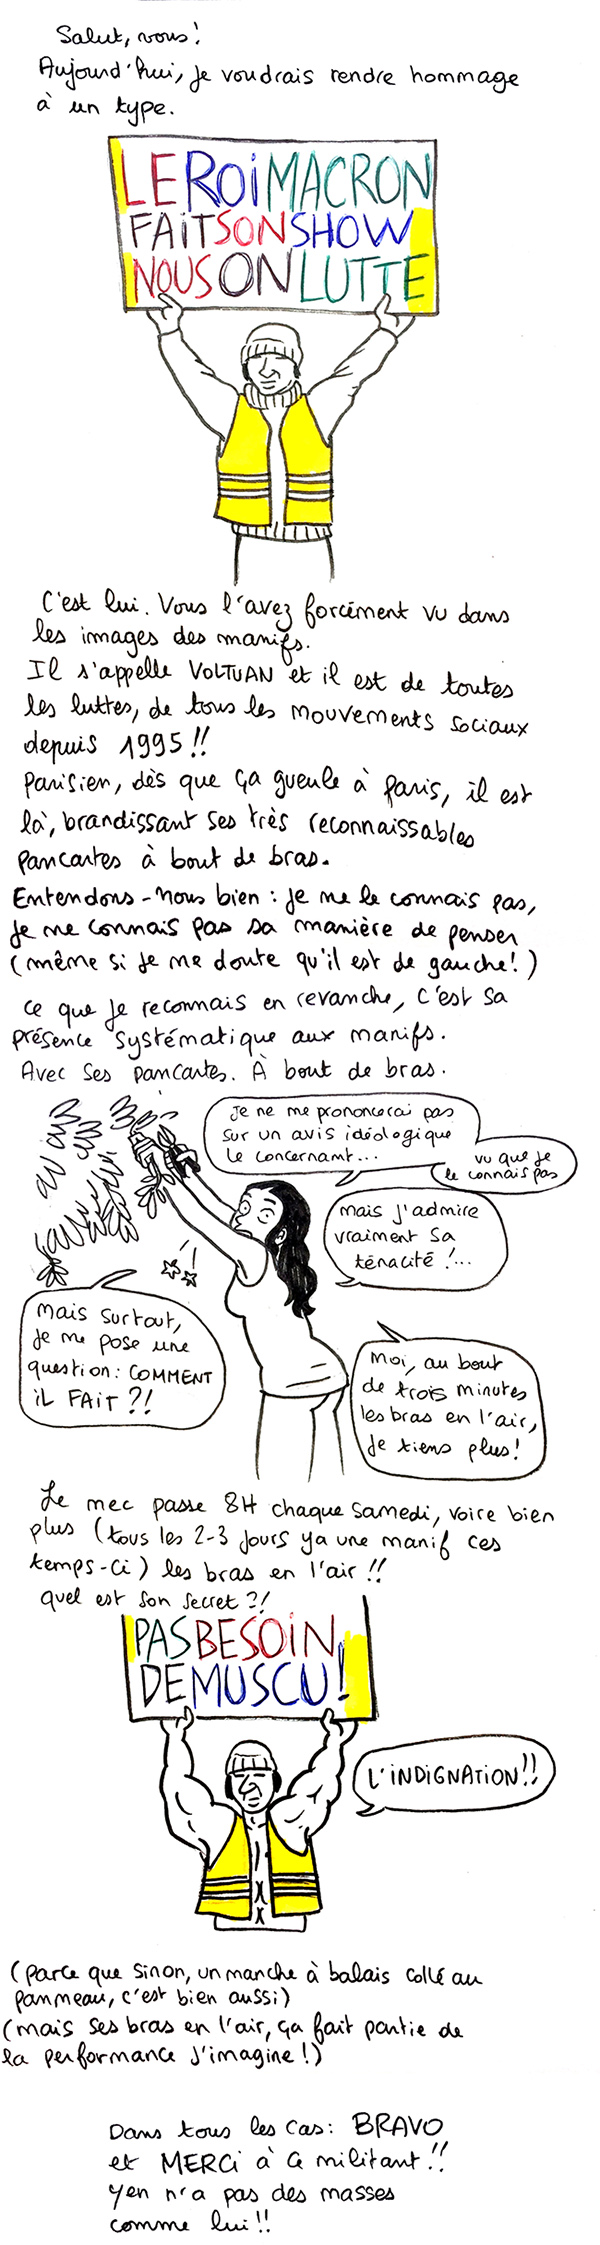 Salut, vous!
Aujourd'hui, je voudrais rendre hommage
à un type.
LE ROI MACRON
FAIT SON SHOW
NOUS ON LUTTE
C'est lui. Vous l'avez forcément vu dans
les images des manifs.
Il s'appelle VOLTUAN et il est de toutes
les luttes, de tous les mouvements sociaux
depuis 1995!!
Parisien, dès que ça gueule à Paris, il est
là, brandissant ses très reconnaissables
pancartes à bout de bras.
Entendons-nous bien : je ne le connais pas,
je ne connais pas sa manière de penser
(même si je me doute qu'il est de gauche!)
Ce que je reconnais en revanche, c'est sa
présence systématique aux manifs.
Avec ses pancartes. À bout de bras.
Je ne me prononcerai pas
sur un avis idéologique
le concernant...
vu que je
le connais pas
mais j'admire
vraiment sa
ténacité!...
Mais surtout,
je me pose une
question: COMMENT
IL FAIT?!
Moi, au bout
de trois minutes
les bras en l'air,
je tiens plus!
Le mec passe 8H chaque samedi, voire bien
plus (tous les 2-3 jours ya une manif ces
temps-ci) les bras en l'air!!
Quel est son secret?!
PAS BESOIN
DE MUSCU!
L'INDIGNATION!!
(Parce que sinon, un manche à balais collé au
panneau, c'est bien aussi)
(mais ses bras en l'air, ça fait partie de
la performance j'imagine!)
Dans tous les cas: BRAVO
et MERCI à ce militant!!
Y en n'a pas des masses
comme lui!!